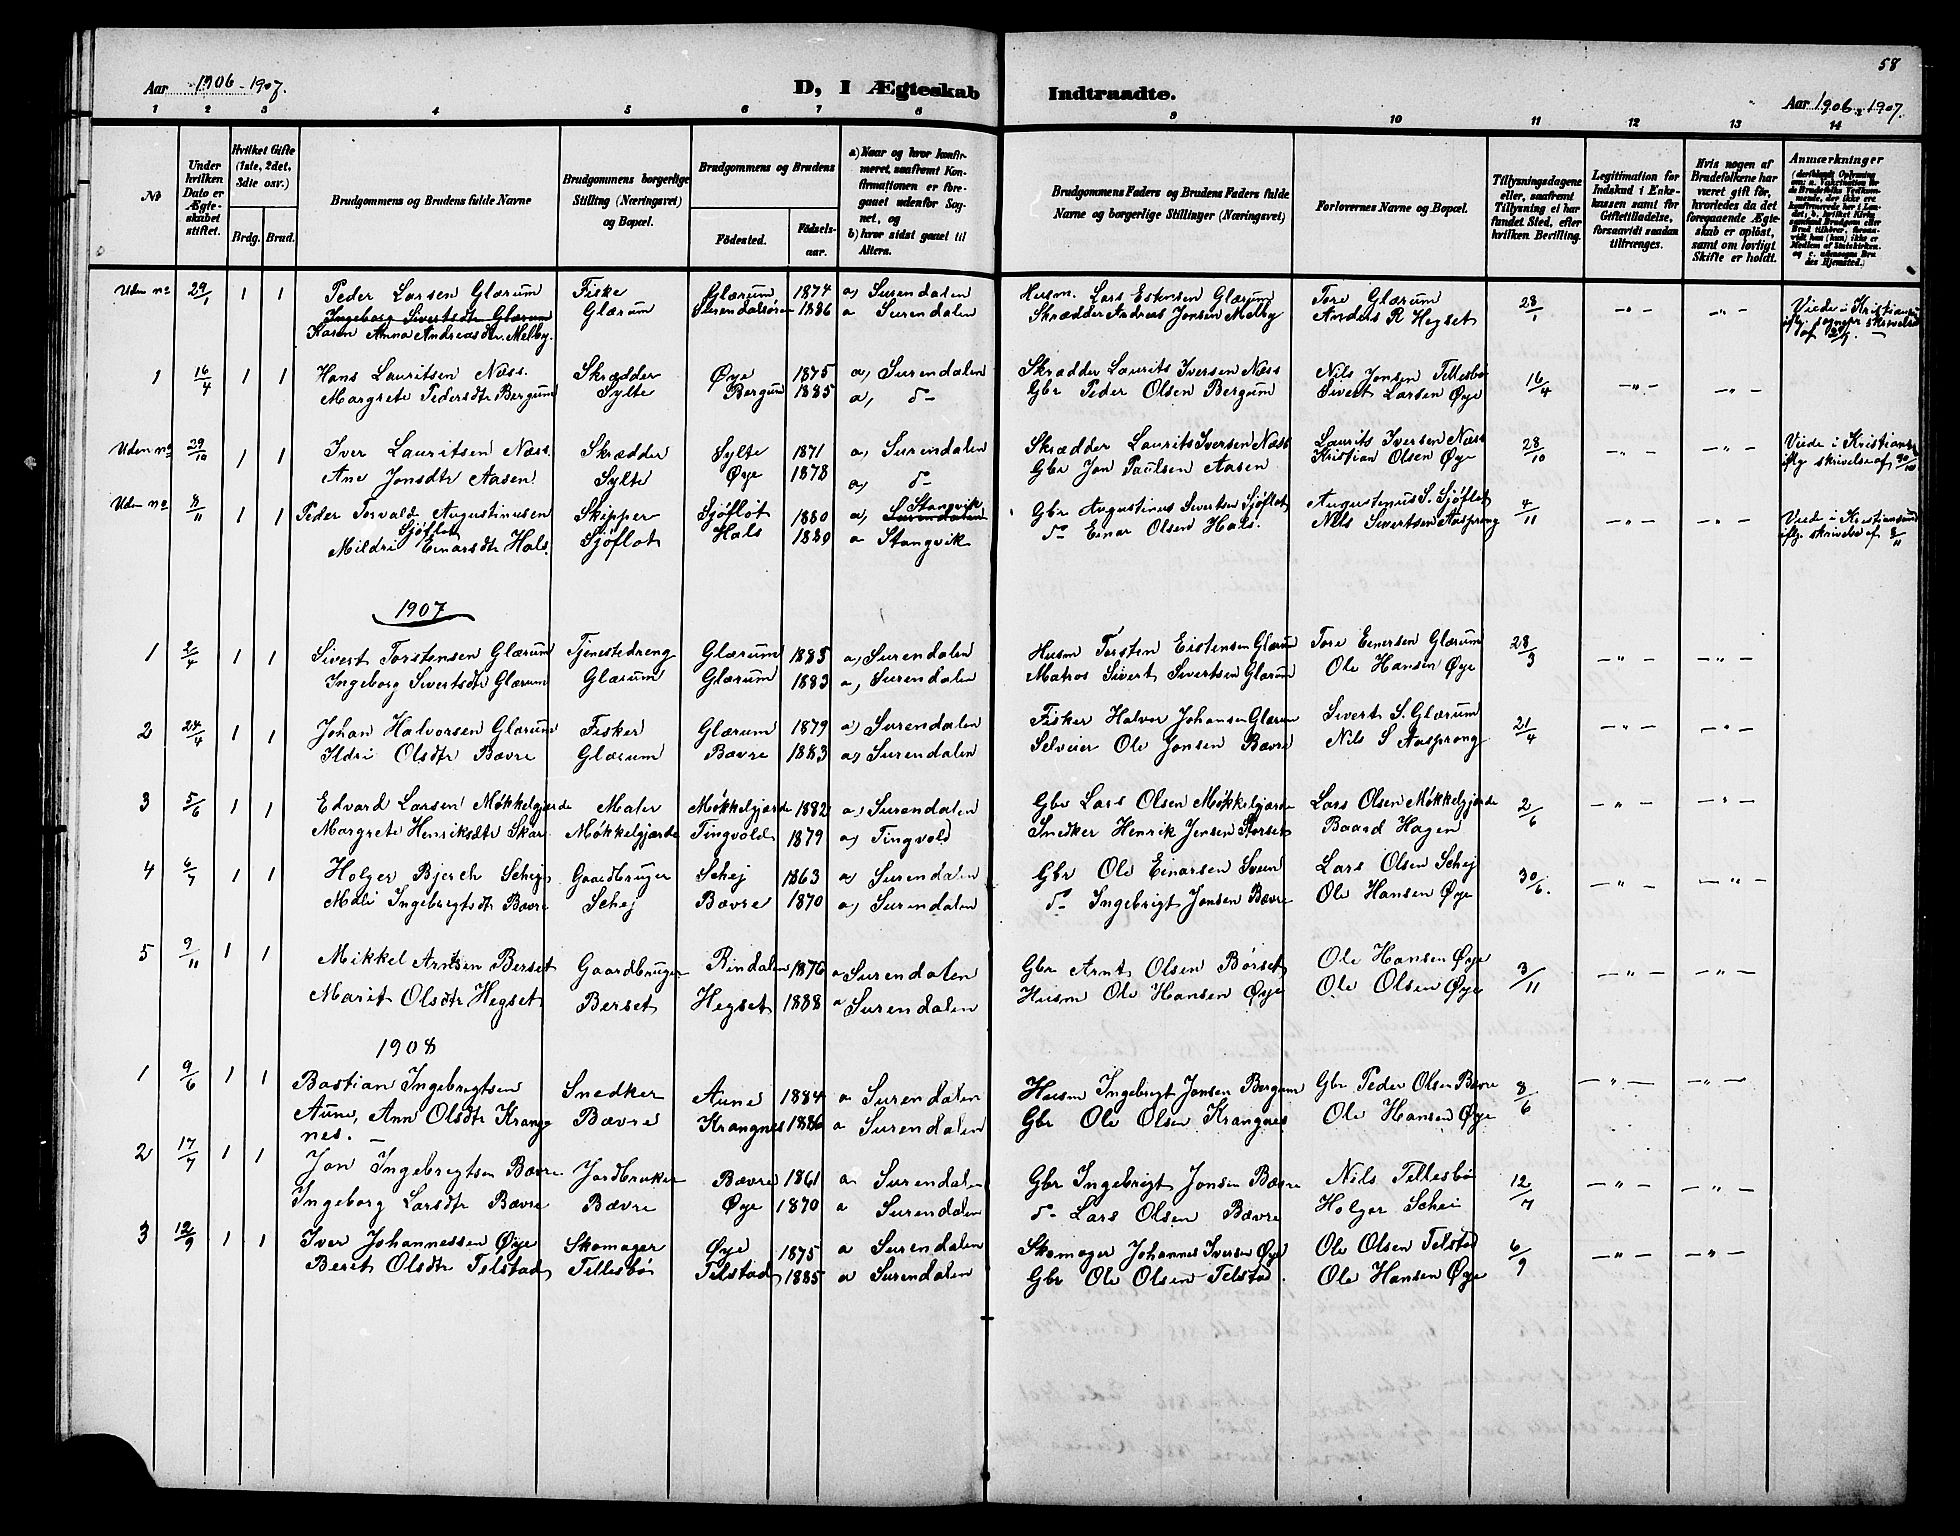 58
Aar 1906-1907.
D, I Ægteskab Indtraadte.
Aar 1906-1907.
1 2 3 4 5 6 7 8 9 10 11 12 13 14
No
Under hvilken Dato er Ægteskabet stiftet.
Hvilket Gifte (1ste, 2det, 3die osv.)
Brdg. Brud.
Brudgommens og Brudens fulde Navne
Brudgommens borgerlige Stilling (Næringsvei) og Bopæl.
Brudgommens og Brudens
Fødested. Fødselsaar.
a) Naar og hvor konfirmeret, saafremt Konfirmationen er foregaaet udenfor Sognet, og
b) hvor sidst gaaet til Alters.
Brudgommens Faders og Brudens Faders fulde Navne og borgerlige Stillinger (Næringsvei)
Forlovernes Navne og Bopæl.
Tillysningsdagene eller, saafremt Tillysning ei har fundet Sted, efter hvilken Bevilling.
Legitimation for Indskud i Enkekassen samt for Giftetilladelse, forsaavidt saadan tiltrænges.
Hvis nogen af Brudefolkene har været gift før, hvorledes da det foregaaende Ægteskab er opløst, samt om lovligt Skifte er holdt.
Anmærkninger
Uden no 29/1 1 1 Peder Larsen Glærum Fiske Glærum 1874 a) Surendalen Husm. Lars Estensen Glærum Tore Glærum 28/1 -"- -"- Viede i Kristiansund
Ingeborg Sivertsdtr Glærum Glærum Surendalsøren 1886 a Surendalen Skrædder Andreas Jonsen Melby Anders R Hegset
Karen Anna Andreasdtr. Melby.
1 16/4 1 1 Hans Lauritsen Næss. Skrædder Øye 1875 a) Surendalen Skrædder Laurits Iversen Næss Nils Jonsen Tellesbø 16/4 -"- -"-
Margrete Pedersdtr Bergum Sylte Bergum 1885 a) d- Gbr Peder Olsen Bergum Sivert Larsen Øye
Uden no 29/10 1 1 Iver Lauritsen Næss. Skrædder Sylte 1871 a) Surendalen Skrædder Laurits Iversen Næss Laurits Iversen Næss 28/10 -"- -"- Viede i Kristiansund
Ane Jonsdtr Aasen Sylte Øye 1878 a) d- Gbr Jon Paulsen Aasen Kristian Olsen Øye iflg skrivelse af 30/10
Uden no 8/11 1 1 Peder Torvald Augustinusen Sjøflot Skipper Sjøflot 1880 a) Surendalen Stangvik Gbr Augustinus Sivertsen Sjøflot Augustinus S. Sjøflot 4/11 -"- -"- Viede i Kristiansund
Mildri Einarsdtr Hals. Sjøflot Hals 1880 a Stangvik d- Einar Olsen Hals. Nils Sivertsen Aasprong iflg. skrivelse af 8/11
1907
1 2/4 1 1 Sivert Torstensen Glærum Tjenestedreng Glærum 1885 a) Surendalen Husm Torsten Eistensen Glærum Tore Einersen Glærum 28/3 -"- -"-
Ingeborg Sivertsdtr Glærum Glærum Glærum 1883 a) Surendalen Matros Sivert Sivertsen Glærum Ole Hansen Øye
2 24/4 1 1 Johan Halvorsen Glærum Fisker Glærum 1879 a) Surendalen Fisker Halvor Johansen Glærum Sivert S. Glærum 21/4 -"- -"-
Ildri Olsdtr Bævre Glærum Bævre 1883 a) Surendalen Selveier Ole Jonsen Bævre Nils S Aasprong
3 5/6 1 1 Edvard Larsen Møkkelgjærde Maler Møkkelgjærde 1882 a) Surendalen Gbr Lars Olsen Møkkelgjærde Lars Olsen Møkkelgjærde 2/6 -"- -"-
Margrete Henriksdtr Skar Møkkelgjærde Tingvold 1879 a) Tingvold Snedker Henrik Jensen Korset Baard Hagen
4 6/7 1 1 Holger Bjerch Schej Gaardbruger Schej 1863 a) Surendalen Gbr Ole Einarsen Svein Lars Olsen Schej 30/6. -"- -"-
Mali Ingebrigtsdtr Bævre Schej Bævre 1870 a) Surendalen d- Ingebrigt Jonsen Bævre Ole Hansen Øye
5 9/11 1 1 Mikkel Arntsen Berset Gaardbruger Rindalen 1876 a Surendalen Gbr Arnt Olsen Børset Ole Hansen Øye 3/11 -"- -"-
Marit Olsdtr Hegset Berset Hegset 1888 a Surendalen Husm Ole Hansen Øye Ole Olsen Øye
1908
1 9/6 1 1 Bastian Ingebrigtsen Snedker Aune 1884 a Surendalen Husm Ingebrigt Jonsen Bergum Gbr Peder Olsen Bævre 8/6 -"- -"-
Aune, Ann Olsdtr Krangnes. Bævre Krangnes 1886 a Surendalen Gbr Ole Olsen Krangnes Ole Hansen Øye
2 17/7 1 1 Jon Ingebrigtsen Bævre Jordbruker Bævre 1861 a Surendalen Gbr Ingebrigt Jonsen Bævre Nils Tellesbø 12/7 -"- -"-
Ingeborg Larsdtr Bævre Bævre Øye 1870 a Surendalen d- Lars Olsen Bævre Holger Schei
3 12/9 1 1 Iver Johannessen Øye Skomager Øye 1875 a Surendalen Skomager Johannes Iversen Øye Ole Olsen Telstad 6/9 -"- -"-
Beret Olsdtr Telstad Tellesbø Telstad 1885 a Surendalen Gbr Ole Olsen Telstad. Ole Hansen Øye